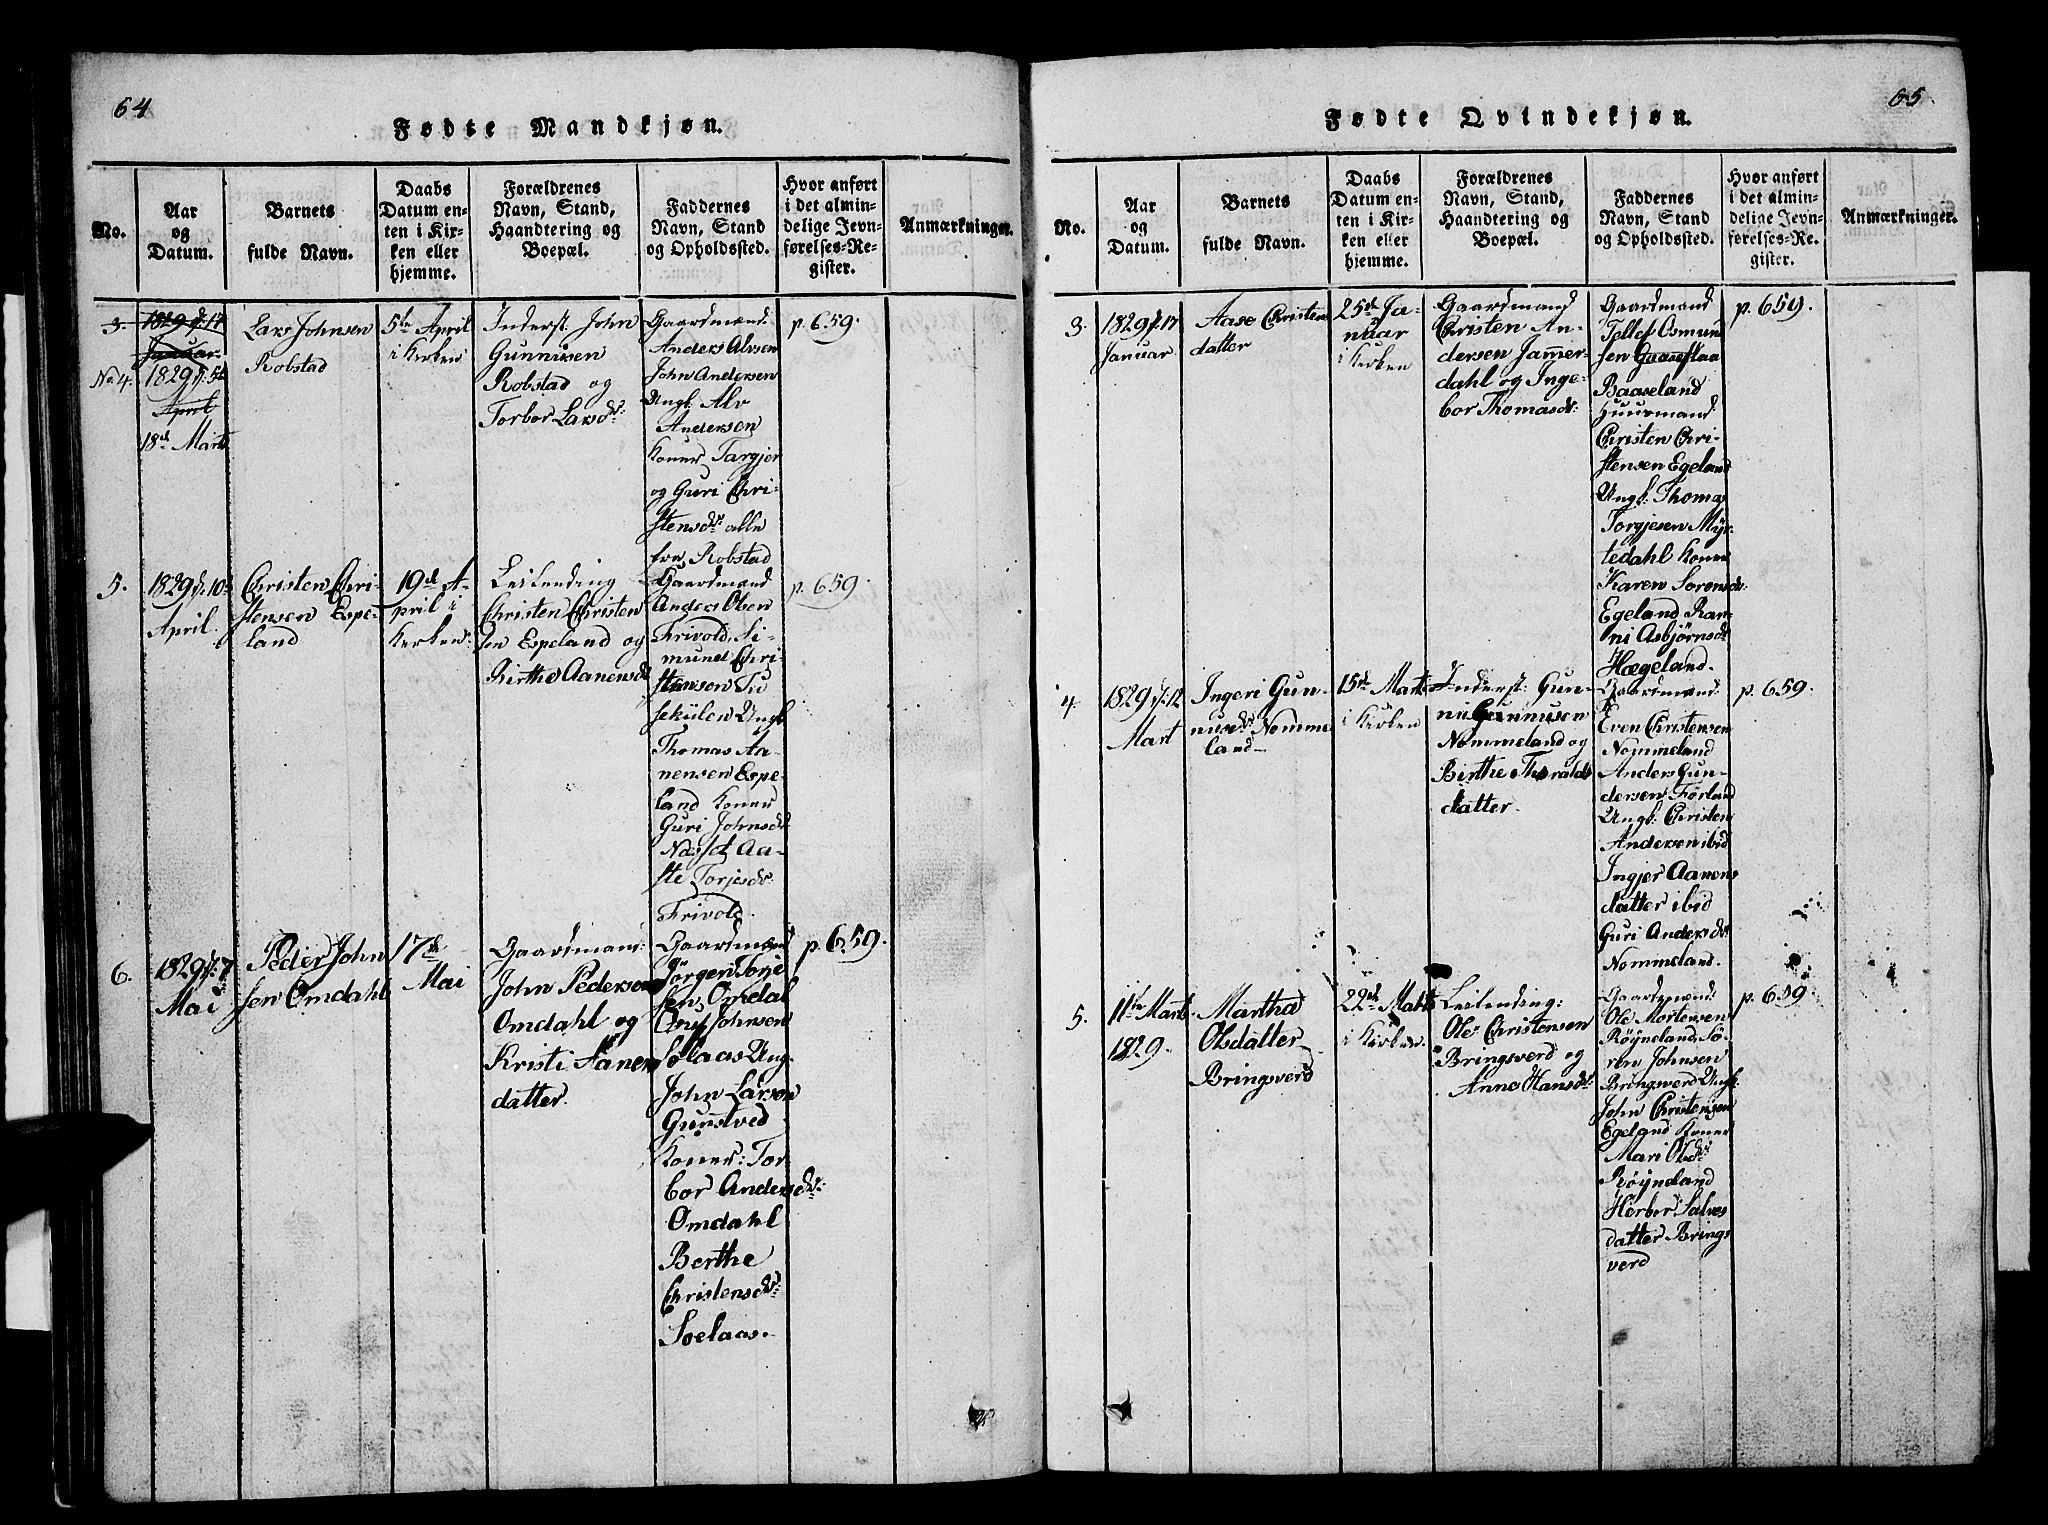 64
Fødte Mandkjøn.
No.
Aar
og
Datum.
Barnets
fulde Navn.
Daabs
Datum en-
ten i Kir-
ken eller
hjemme.
Forældrenes
Navn, Stand,
Haandtering og
Boepæl.
Faddernes
Navn, Stand
og Opholdssted.
Hvor anført
i det almin-
delige Jevn-
førelses-Re-
gister.
Anmærkninger.
3.
1829 d. 17
Januar
No 4.
1829 d. 5te
April
18de Marts
Lars Johnsen
Robstad
5te April
i Kirken
Inderst. John
Gunnusen
Robstad og
Torbor Larsdr:
Gaardmænd:
Anders Alvsen
John Andersen
Ungk. Alv
Andersen
Koner Targjer
og Guri Chri-
stensdr: alle
fra Robstad
p. 659.
5.
1829 d. 10de
April.
Christen Chri-
stensen Espe-
land
19de A-
pril i
Kirken:
Leilending
Christen Christen
sen Espeland og
Birthe Aanensdr
Gaardmænd
Anders Olsen
Frivold, Si-
mund Chri-
stensen Tu
sekülen Ungk
Thomas Aa-
nensen Espe-
land Koner
Guri Johnsdr
Næsset Aa-
ste Torjesdr:
Frivold.
p. 659.
6.
1829 d. 7
Mai
Peder John
sen Omdahl
17de
Mai
Gaardmand:
John Pedersen
Omdahl og
Kristi Aanens
datter.
Gaardmænd
Jörgen Torje
sen Omdal
Onuf Johnsen
Solaas Ung.
John Larsen
Gunstved
Koner: Tor-
bor Andersdr:
Omdahl
Berthe
Christensdr:
Soelaas.
p. 659.
65.
Fødte Qvindekjøn.
No.
Aar
og
Datum.
Barnets
fulde Navn.
Daabs
Datum en-
ten i Kir-
ken eller
hjemme.
Forældrenes
Navn, Stand,
Haandtering og
Boepæl.
Faddernes
Navn, Stand
og Opholdssted.
Hvor anført
i det almin-
delige Jevn-
førelses-Re-
gister.
Anmærkninger.
3.
1829 d. 17
Januar
Aase Christens
datter
25de Ja-
nuar
i Kirken
Gaardmand
Christen An-
dersen Jammer-
dahl og Inge-
bor Thomasdr:
Gaardmænd
Tellef Osmund
sen Gaaseflaa
Baaseland
Huusmand
Christen Chri-
stensen Egeland
Ungk. Thomas
Torgjesen Myr-
tedahl Koner
Karen Sorensdr
Egeland Ran-
ni Asbjørnsdr
Hægeland.
p. 659.
4.
1829 d. 12
Mart
Ingeri Gun-
nusdr Nomme
land
15de Marts
i Kirken
Inderst: Gun-
nu Gunnusen
Nommeland og
Birthe Thoralds
datter.
Gaardmænd:
Even Christensen
Nommeland
Anders Gun-
dersen Førland
Ungk: Christen
Andersen ibid
Ingjer Aanens
datter ibid
Guri Andersdr:
Nommeland.
p. 659.
5.
11te Marts
1829.
Martha
Olsdatter
Bringsverd
22de Marts
i Kirken.
Leilending:
Ole Christensen
Bringsverd og
Anne Hansdr:
Gaardmænd:
Ole Mortensen
Røyneland, Sö-
ren Johnsen
Bringsverd Ungk
John Christensen
Egeland Koner
Mari Olsdr
Røyneland
Herbor Salves
datter Brings
verd
p. 659